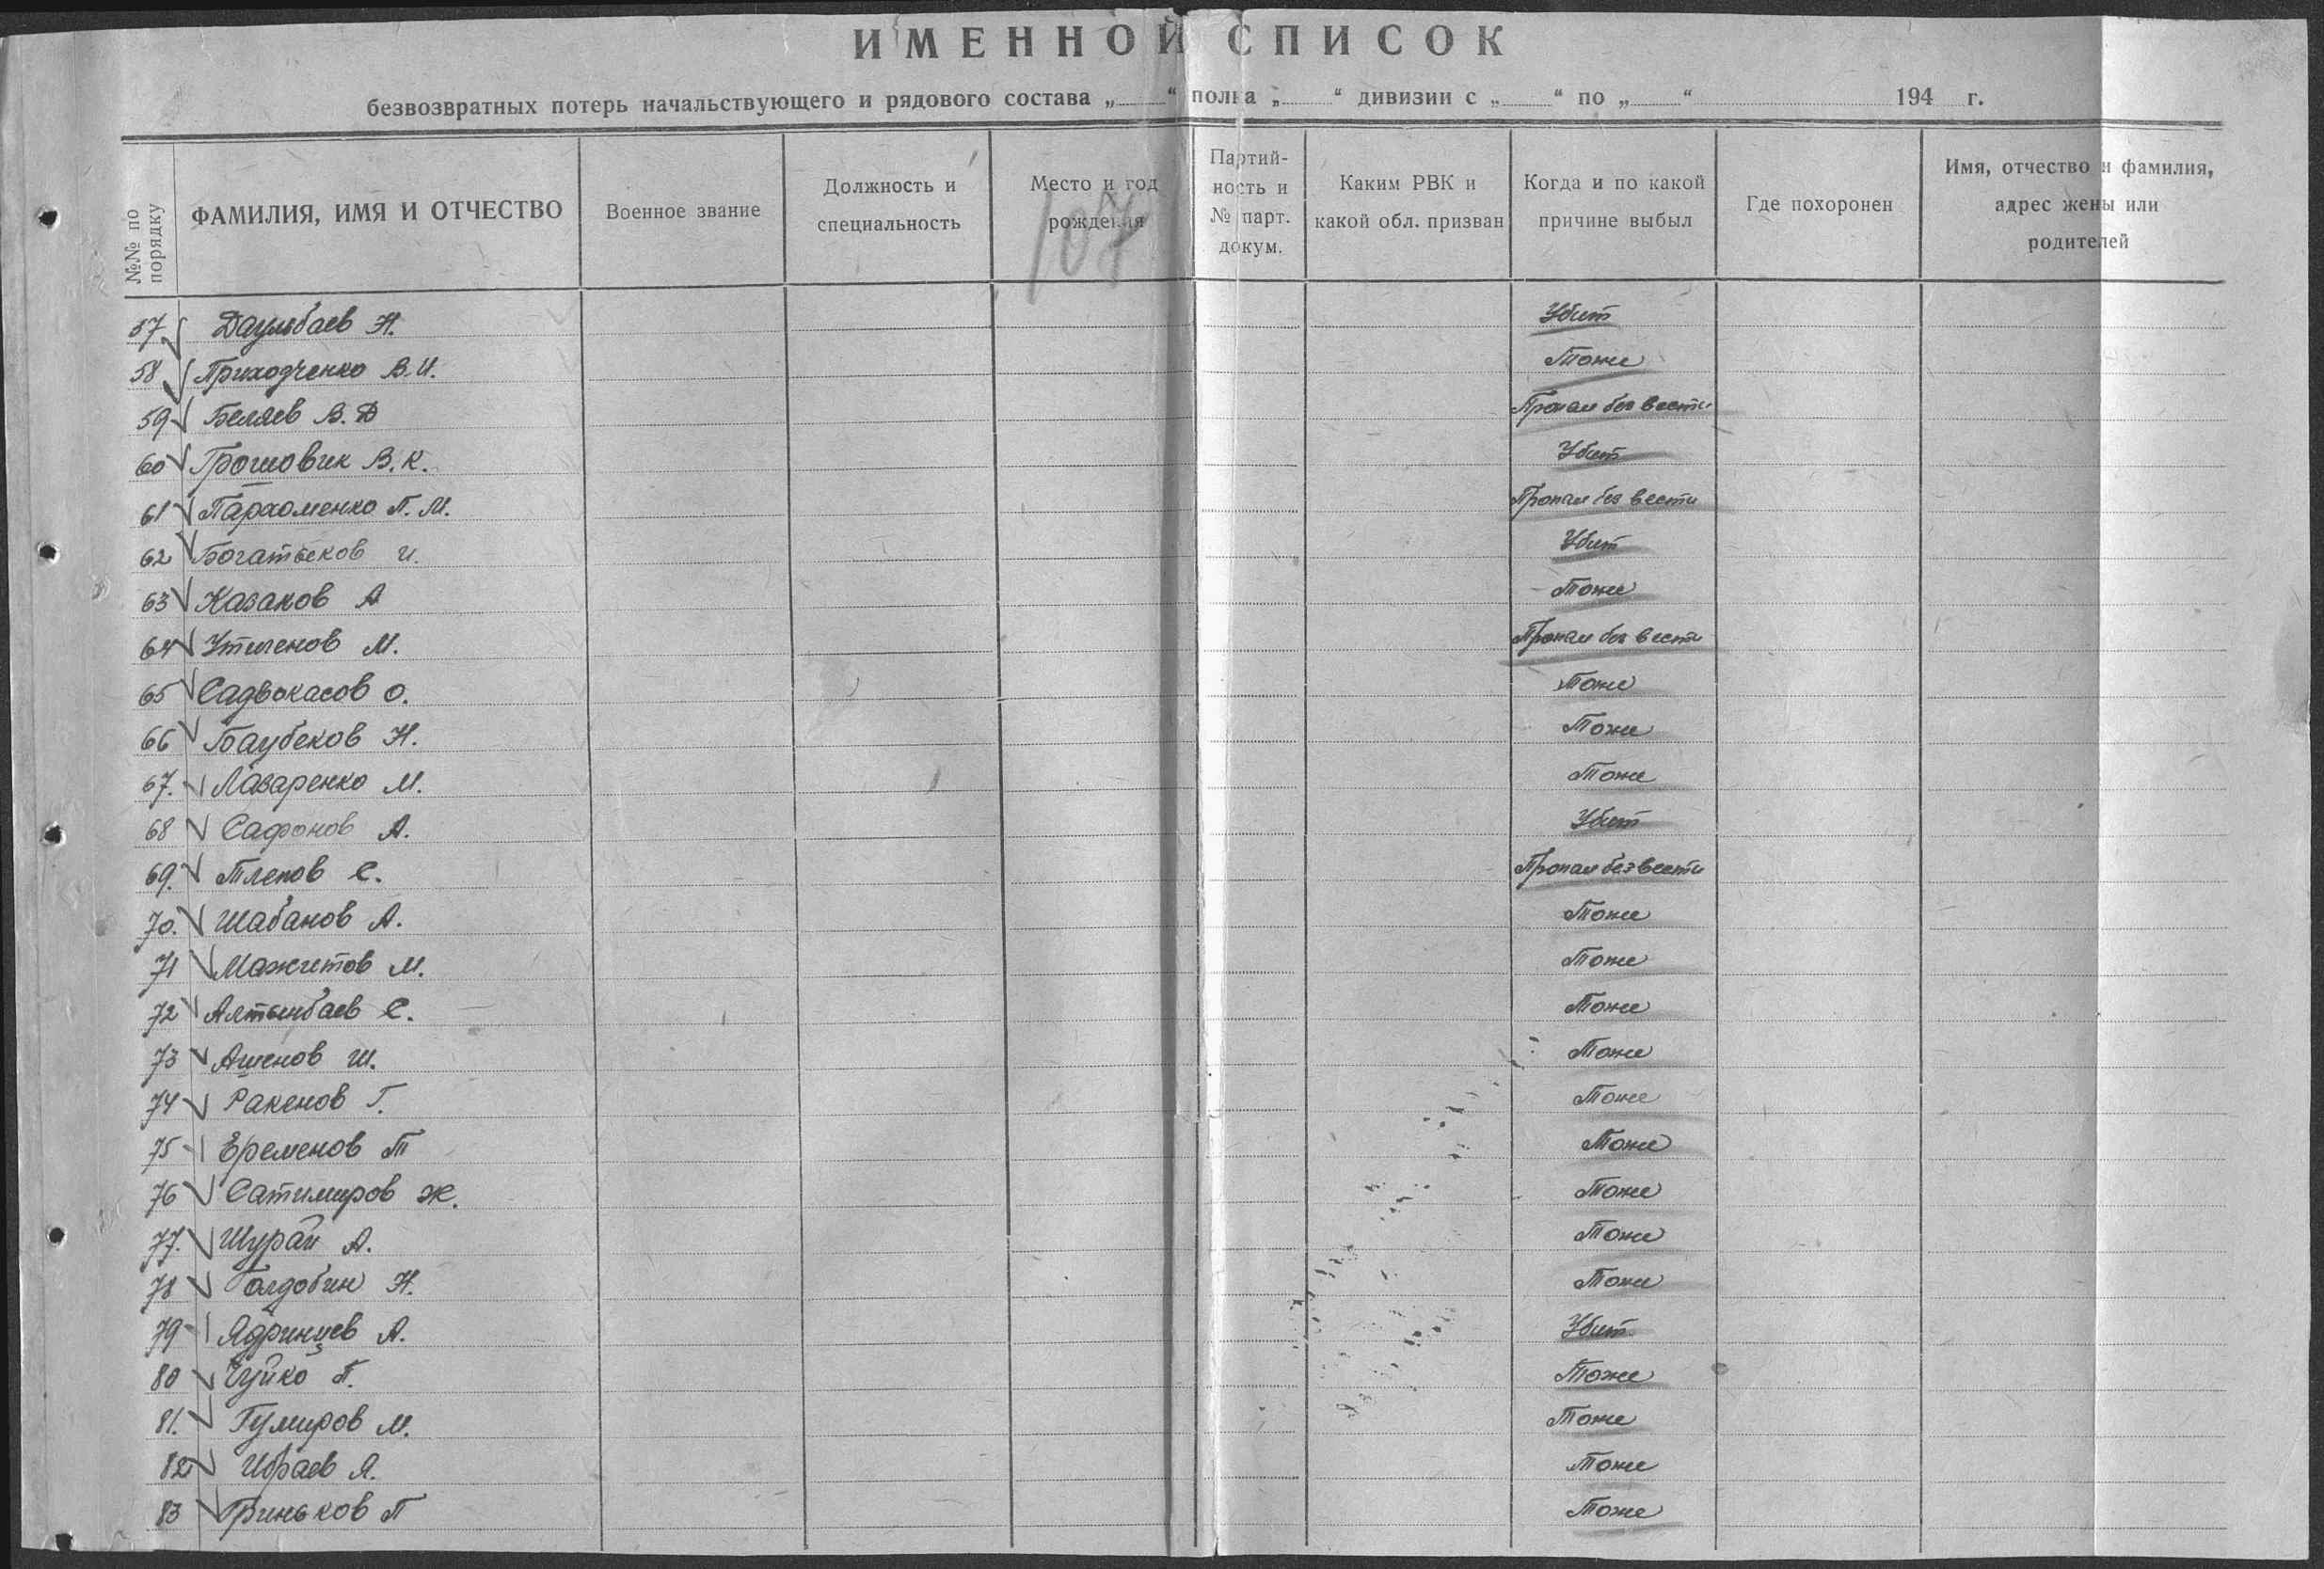 ИМЕННОЙ СПИСОК
безвозвратных потерь начальствующего и рядового состава „ “ полка „ “ дивизии с „ “ по „ “ 194 г.
№№ по порядку
ФАМИЛИЯ, ИМЯ И ОТЧЕСТВО
Военное звание
Должность и специальность
Место и год рождения
Партий-ность и № парт. докум.
Каким РВК и какой обл. призван
Когда и по какой причине выбыл
Где похоронен
Имя, отчество и фамилия, адрес жены или родителей
107
57 Даульбаев Н. Убит
58 Приходченко В.И. Тоже
59 Беляев В.Д Пропал без вести
60 Грошовик В.К. Убит
61 Пархоменко П.М. Пропал без вести
62 Богатыков И. Убит
63 Казаков А Тоже
64 Утиленов М. Пропал без вести
65 Садвокасов О. Тоже
66 Баубеков Н. Тоже
67. Лазаренко М. Тоже
68 Сафонов А. Убит
69. Тлепов С. Пропал без вести
70. Шабанов А. Тоже
71 Мажитов М. Тоже
72 Алтынбаев С. Тоже
73 Ашенов Ш. Тоже
74 Ракенов Г. Тоже
75 Еременов Т Тоже
76 Сатимиров Ж. Тоже
77. Шурай А. Тоже
78 Голдобин Н. Тоже
79 Ядринцев А. Убит
80 Чуйко П. Тоже
81. Гумиров М. Тоже
82 Ибраев Я. Тоже
83 Гриньков П Тоже